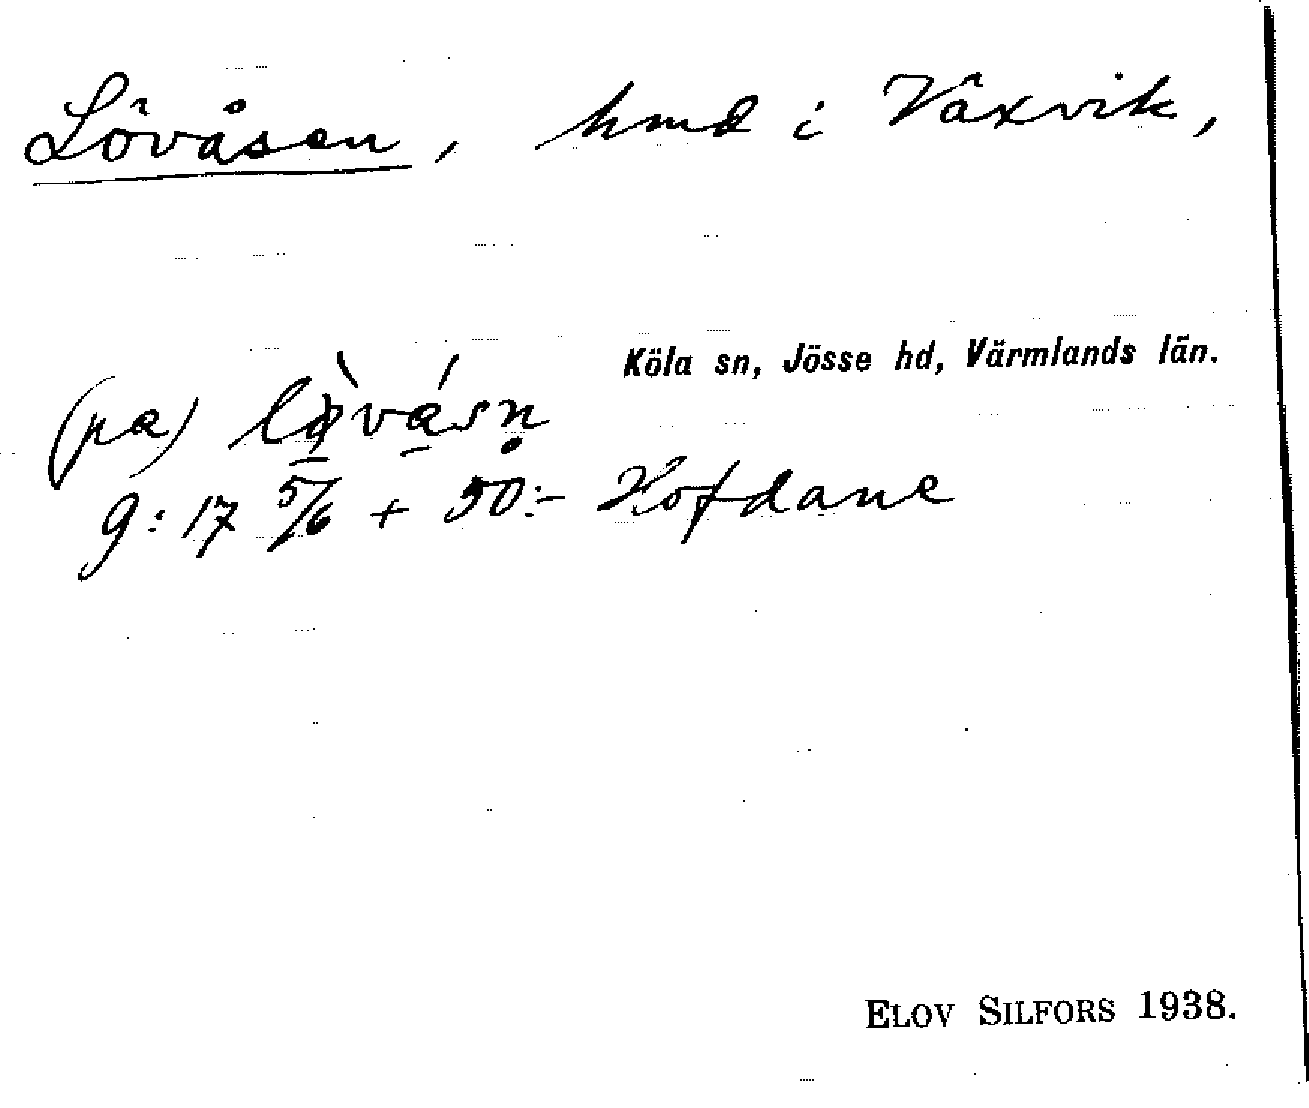 Lövåsen, hmd i Växvik,
Köla sn, Jösse hd, Värmlands län.
(pa) lø̀vásn̥
9:17 5/6 + 50:- Hofdane
ELOV SILFORS 1938.